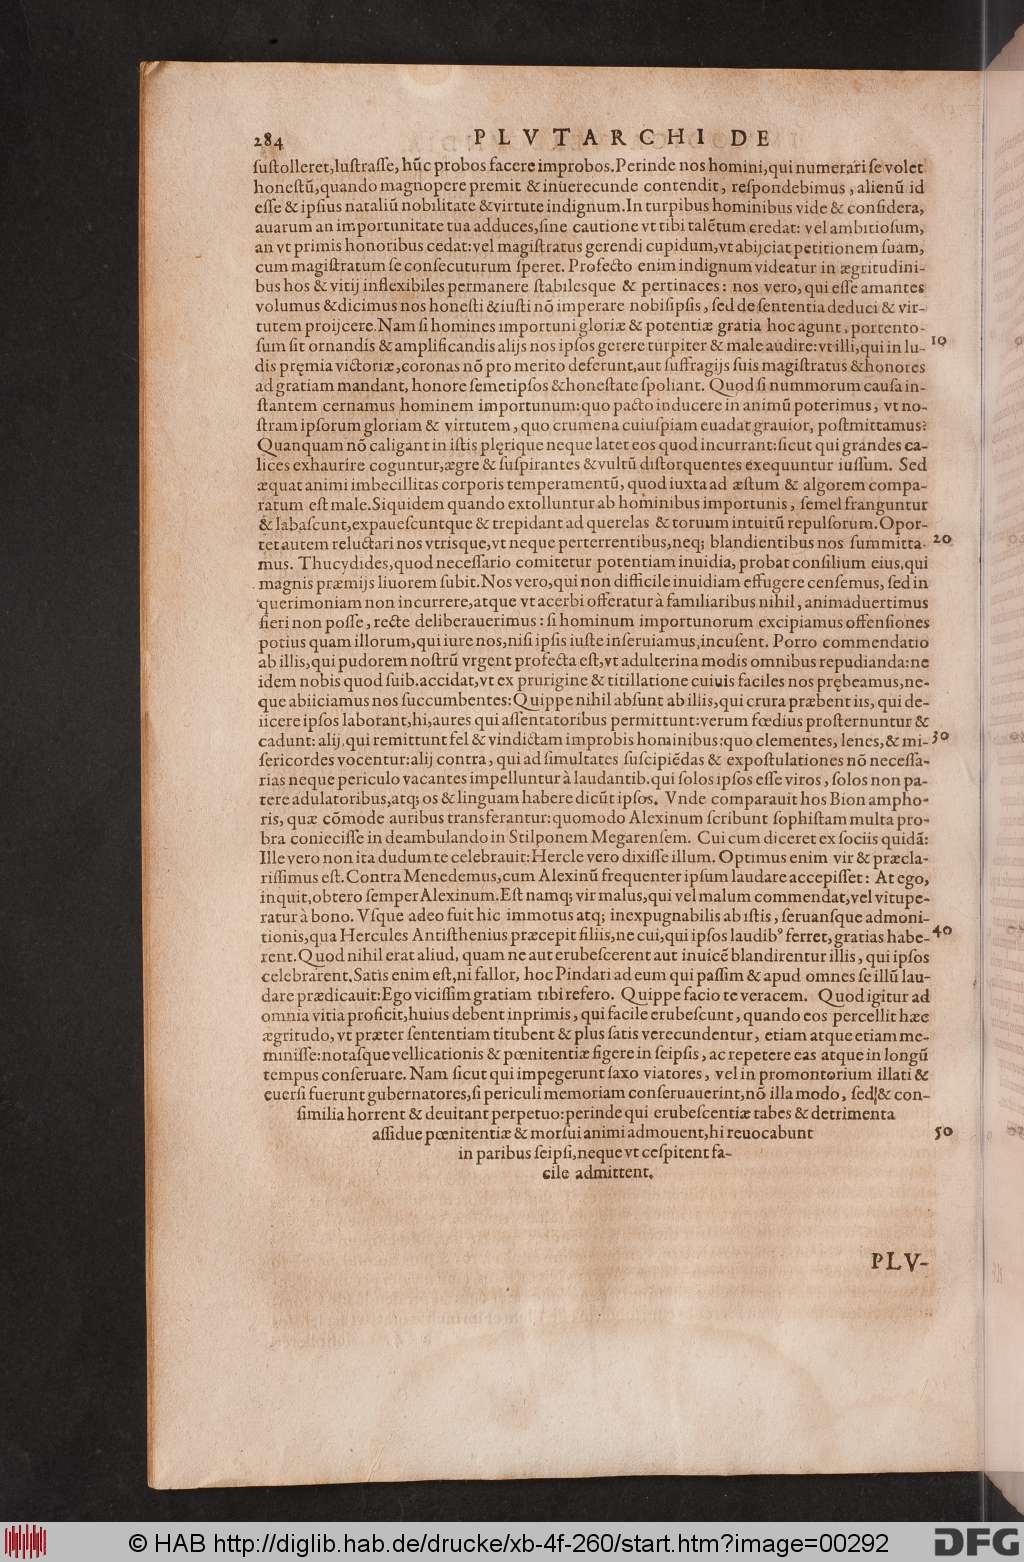 284 PLVTARCHI DE
ſuſtolleret,luſtraſſe, hũc probos facere improbos.Perinde nos homini,qui numerari ſe volet
honeſtũ,quando magnopere premit & inuerecunde contendit, reſpondebimus, alienũ id
eſſe & ipſius nataliũ nobilitate & virtute indignum.In turpibus hominibus vide & conſidera,
auarum an importunitate tua adduces,ſine cautione vt tibi talẽtum credat: vel ambitioſum,
an vt primis honoribus cedat:vel magiſtratus gerendi cupidum,vt abijciat petitionem ſuam,
cum magiſtratum ſe conſecuturum ſperet. Profecto enim indignum videatur in ægritudini-
bus hos & vitij inflexibiles permanere ſtabilesque & pertinaces: nos vero, qui eſſe amantes
volumus & dicimus nos honeſti & iuſti nõ imperare nobiſipſis, ſed de ſententia deduci & vir-
tutem proijcere.Nam ſi homines importuni gloriæ & potentiæ gratia hoc agunt, portento-
ſum ſit ornandis & amplificandis alijs nos ipſos gerere turpiter & male audire:vt illi,qui in lu- 10
dis pręmia victoriæ,coronas nõ pro merito deferunt,aut ſuffragijs ſuis magiſtratus & honores
ad gratiam mandant, honore ſemetipſos & honeſtate ſpoliant. Quod ſi nummorum cauſa in-
ſtantem cernamus hominem importunum:quo pacto inducere in animũ poterimus, vt no-
ſtram ipſorum gloriam & virtutem, quo crumena cuiuſpiam euadat grauior, poſtmittamus?
Quanquam nõ caligant in iſtis plęrique neque latet eos quod incurrant:ſicut qui grandes ca-
lices exhaurire coguntur,ægre & ſuſpirantes & vultũ diſtorquentes exequuntur iuſſum. Sed
æquat animi imbecillitas corporis temperamentũ, quod iuxta ad æſtum & algorem compa-
ratum eſt male.Siquidem quando extolluntur ab hominibus importunis, ſemel franguntur
& labaſcunt,expaueſcuntque & trepidant ad querelas & toruum intuitũ repulſorum.Opor-
tet autem reluctari nos vtrisque,vt neque perterrentibus,neq; blandientibus nos ſummitta- 20
mus. Thucydides,quod neceſſario comitetur potentiam inuidia, probat conſilium eius,qui
magnis præmijs liuorem ſubit.Nos vero,qui non difficile inuidiam effugere cenſemus, ſed in
querimoniam non incurrere,atque vt acerbi offeratur à familiaribus nihil, animaduertimus
fieri non poſſe, recte deliberauerimus: ſi hominum importunorum excipiamus offenſiones
potius quam illorum,qui iure nos,niſi ipſis iuſte inſeruiamus,incuſent. Porro commendatio
ab illis,qui pudorem noſtrũ vrgent profecta eſt,vt adulterina modis omnibus repudianda:ne
idem nobis quod ſuib.accidat,vt ex prurigine & titillatione cuiuis faciles nos prębeamus,ne-
que abiiciamus nos ſuccumbentes:Quippe nihil abſunt ab illis,qui crura præbent iis, qui de-
iicere ipſos laborant,hi,aures qui aſſentatoribus permittunt:verum fœdius proſternuntur &
cadunt: alij,qui remittunt fel & vindictam improbis hominibus:quo clementes, lenes,& mi- 30
ſericordes vocentur:alij contra, qui ad ſimultates ſuſcipiẽdas & expoſtulationes nõ neceſſa-
rias neque periculo vacantes impelluntur à laudantib.qui ſolos ipſos eſſe viros, ſolos non pa-
tere adulatoribus,atq; os & linguam habere dicũt ipſos. Vnde comparauit hos Bion ampho-
ris, quæ cõmode auribus transferantur:quomodo Alexinum ſcribunt ſophiſtam multa pro-
bra conieciſſe in deambulando in Stilponem Megarenſem. Cui cum diceret ex ſociis quidã:
Ille vero non ita dudum te celebrauit:Hercle vero dixiſſe illum. Optimus enim vir & præcla-
riſſimus eſt.Contra Menedemus,cum Alexinũ frequenter ipſum laudare accepiſſet: At ego,
inquit,obtero ſemper Alexinum.Eſt namq; vir malus,qui vel malum commendat,vel vitupe-
ratur à bono. Vſque adeo fuit hic immotus atq; inexpugnabilis ab iſtis, ſeruanſque admoni-
tionis,qua Hercules Antiſthenius præcepit filiis,ne cui,qui ipſos laudibꝰ ferret,gratias habe- 40
rent.Quod nihil erat aliud, quam ne aut erubeſcerent aut inuicẽ blandirentur illis, qui ipſos
celebrarent.Satis enim eſt,ni fallor, hoc Pindari ad eum qui paſſim & apud omnes ſe illũ lau-
dare prædicauit:Ego viciſſim gratiam tibi refero. Quippe facio te veracem. Quod igitur ad
omnia vitia proficit,huius debent inprimis, qui facile erubeſcunt, quando eos percellit hæc
ægritudo, vt præter ſententiam titubent & plus ſatis verecundentur, etiam atque etiam me-
miniſſe:notaſque vellicationis & pœnitentiæ figere in ſeipſis, ac repetere eas atque in longũ
tempus conſeruare. Nam ſicut qui impegerunt ſaxo viatores, vel in promontorium illati &
euerſi fuerunt gubernatores,ſi periculi memoriam conſeruauerint,nõ illa modo, ſed & con-
ſimilia horrent & deuitant perpetuo:perinde qui erubeſcentiæ tabes & detrimenta
aſſidue pœnitentiæ & morſui animi admouent,hi reuocabunt 50
in paribus ſeipſi,neque vt ceſpitent fa-
cile admittent.
PLV-
© HAB http://diglib.hab.de/drucke/xb-4f-260/start.htm?image=00292
DFG